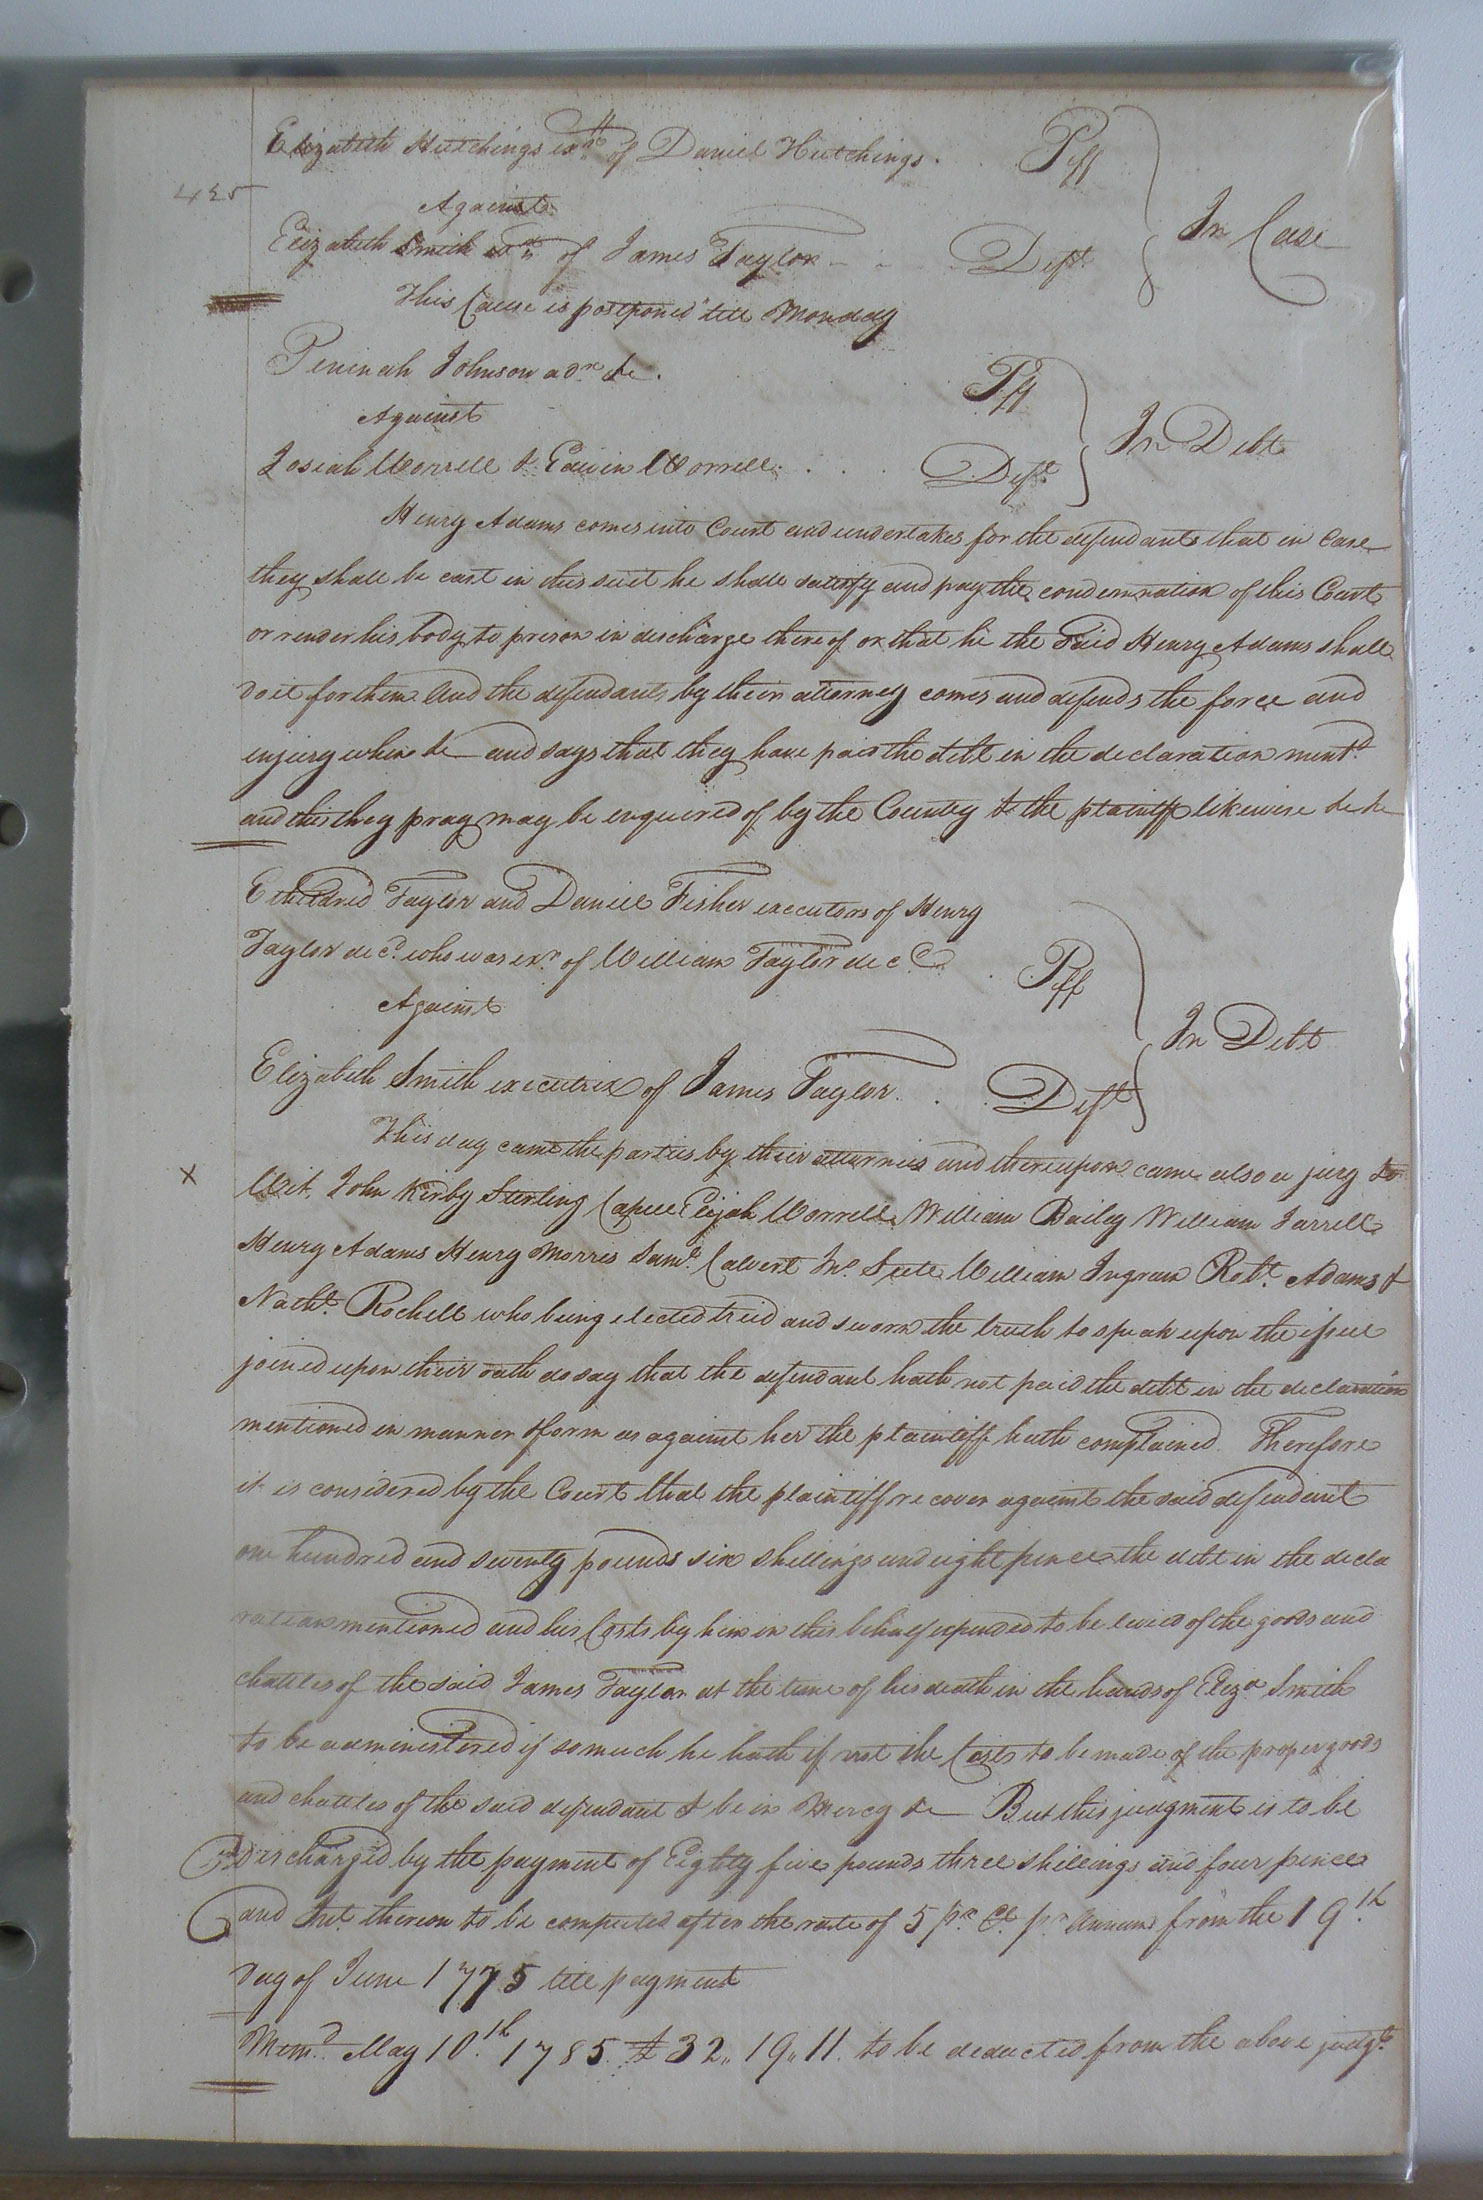 Elizabeth Hutchings exrx of Daniel Hutchings . . Plff
425
Against
In Case
Elizabeth Smith exrx of James Taylor - - . Deft
This Cause is postponed till Monday
Peninah Johnson adrx &c . Plff
Against
In Debt
Josiah Worrell & Edwin Worrell . . . . Defts
Henry Adams comes into Court and undertakes for the defendants that in Case
they shall be cast in this suit he shall satisfy and pay the condemnation of this Court
or render his body to prison in discharge thereof or that he the said Henry Adams shall
do it for them And the defendants by their attorney comes and defends the force and
injury when &c and says that they have paid the debt in the declaration mentd
and this they pray may be enquired of by the County & the plaintiff likewise &c &c
Etheldred Taylor and Daniel Fisher executors of Henry
Taylor decd. who was exr. of William Taylor decd . Plff
Against
In Debt
Elizabeth Smith executrix of James Taylor . . Deft
This day came the parties by their attornies and thereupon came also a jury to
X
Wit, John Kirby Sterling Capell Elijah Worrell William Bailey William Jarrell
Henry Adams Henry Morris Saml. Calvert Jno. William Ingram Robt. Adams &
Nathl. Rochell who being elected tried and sworn the truth to speak upon the issue
joined upon their oath do say that the defendant hath not paid the debt in the declaration
mentioned in manner & form as against her the plaintiff hath complained. Therefore
it is considered by the Court that the plaintiff recover against the said defendant
one hundred and seventy pounds six shillings and eight pence the debt in the decla
ration mentioned and his Costs by him in this behalf expended to be levied of the goods and
chattles of the said James Taylor at the time of his death in the hands of Eliza Smith
to be administered if so much he hath if not the Costs to be made of the proper goods
and chattles of the said defendant & be in Mercy &c But this judgment is to be
Discharged by the payment of Eighty five pounds three shillings and four pence
and Int. thereon to be computed after the rate of 5 pr. Ct. pr. Annum from the 19th.
day of June 1775 till payment
Memd. May 10th. 1785. £ 32,, 19,, 11. to be deducted from the above judgt.